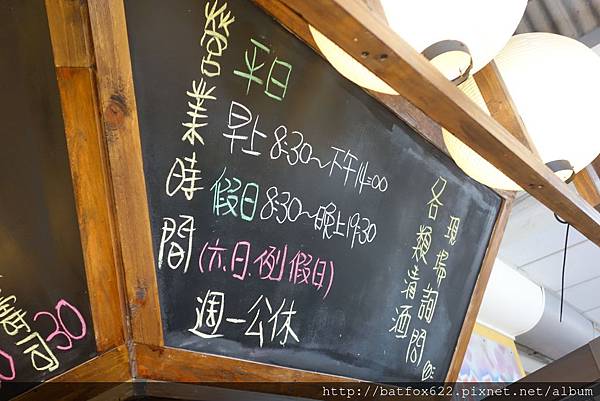 營業時間
平日
早上 8:30~下午14:00
假日 8:30~晚上19:30
(六.日.例假日)
週一公休
現場詢問
各類清酒
壽司
30
http://batfox622.pixnet.net/album